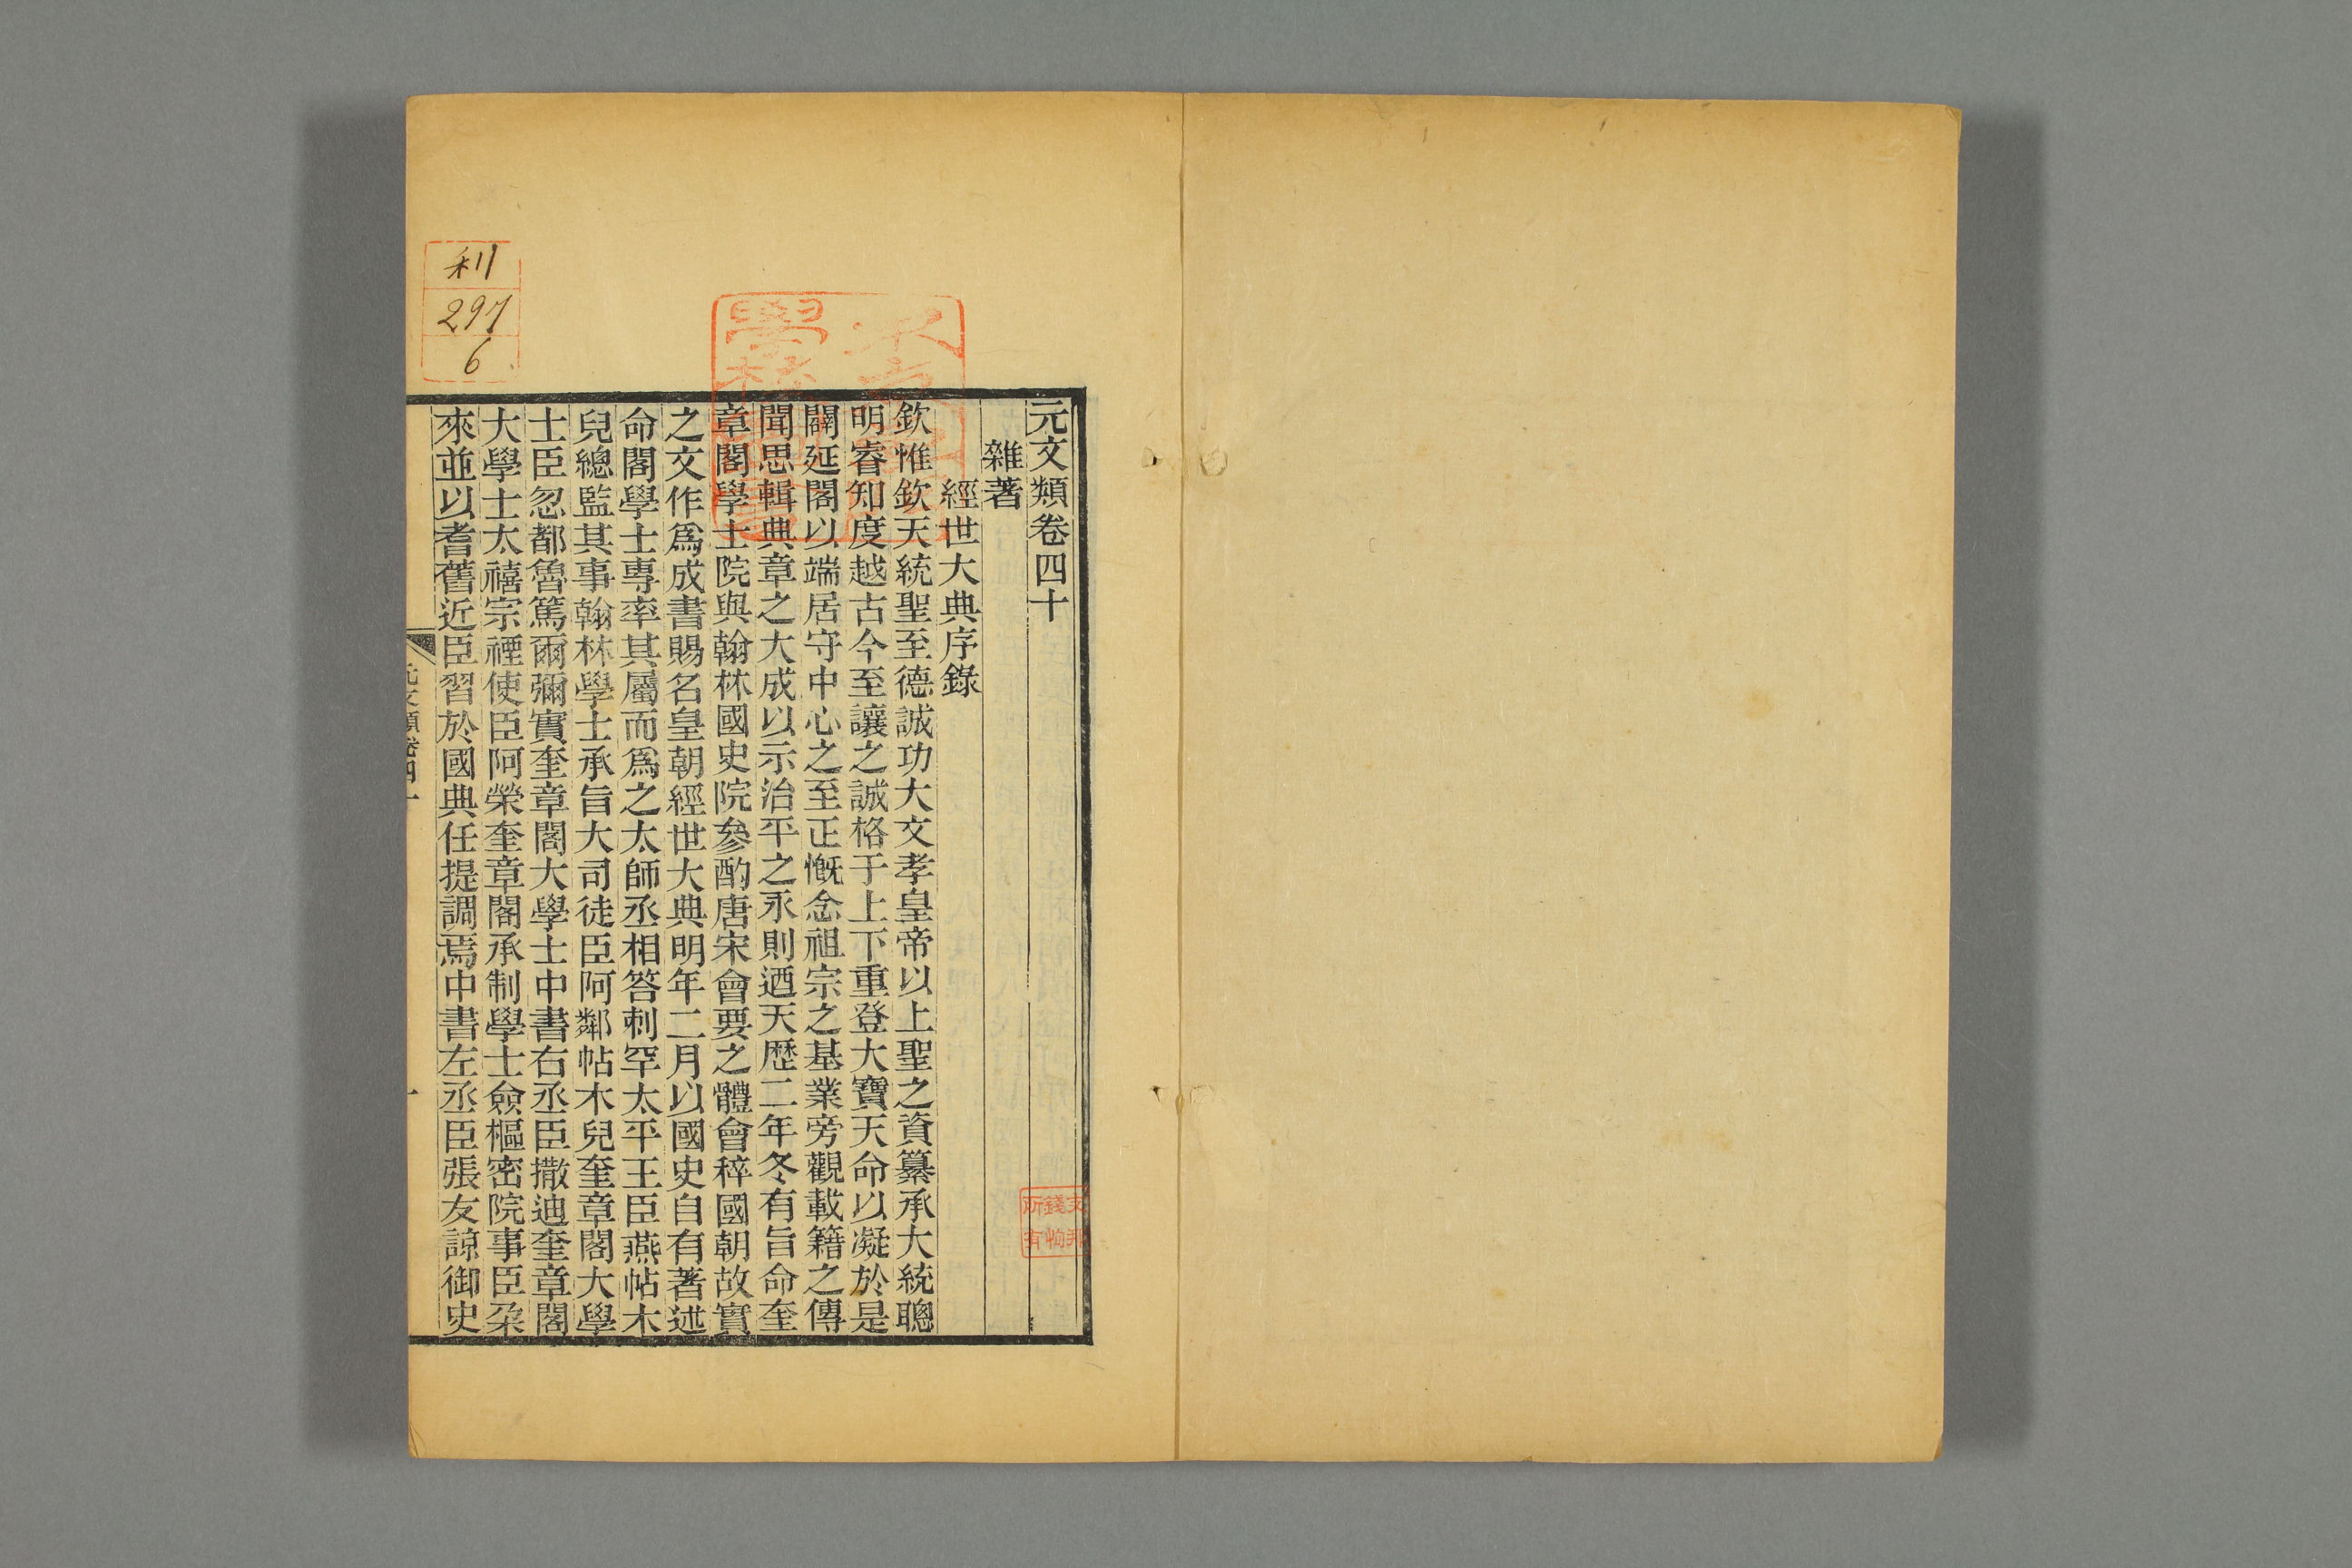 元文類卷四十
雜著
經世大典序錄
欽惟欽天統聖至德誠功大文孝皇帝以上聖之資纂承大統聰
明睿知度越古今至讓之誠格于上下重登大寶天命以凝於是
闢延閣以端居守中心之至正慨念祖宗之基業旁觀載籍之傳
聞思輯典章之大成以示治平之永則迺天歷二年冬有旨命奎
章閣學士院與翰林國史院參酌唐宋會要之體會稡國朝故實
之文作爲成書賜名皇朝經世大典明年二月以國史自有著述
命閣學士專率其屬而爲之太師丞相答刺罕太平王臣燕帖木
兒總監其事翰林學士承旨大司徒臣阿鄰帖木兒奎章閣大學
士臣忽都魯篤爾彌實奎章閣大學士中書右丞臣撒迪奎章閣
大學士太禧宗禋使臣阿榮奎章閣承制學士僉樞密院事臣朶
來並以耆舊近臣習於國典任提調焉中書左丞臣張友諒御史
元文類卷四十
一
利
297
6